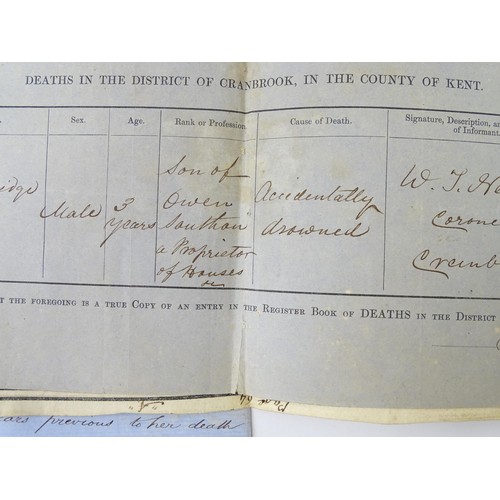 DEATHS IN THE DISTRICT OF CRANBROOK, IN THE COUNTY OF KENT.
Sex. Age. Rank or Profession. Cause of Death. Signature, Description, an
of Informant.
idge Male 3 years son of Owen Southon a Proprietor of Houses Accidentally drowned W. T.
Corone
Cranb
T THE FOREGOING IS A TRUE COPY OF AN ENTRY IN THE REGISTER BOOK OF DEATHS IN THE DISTRICT
ars previous to her death